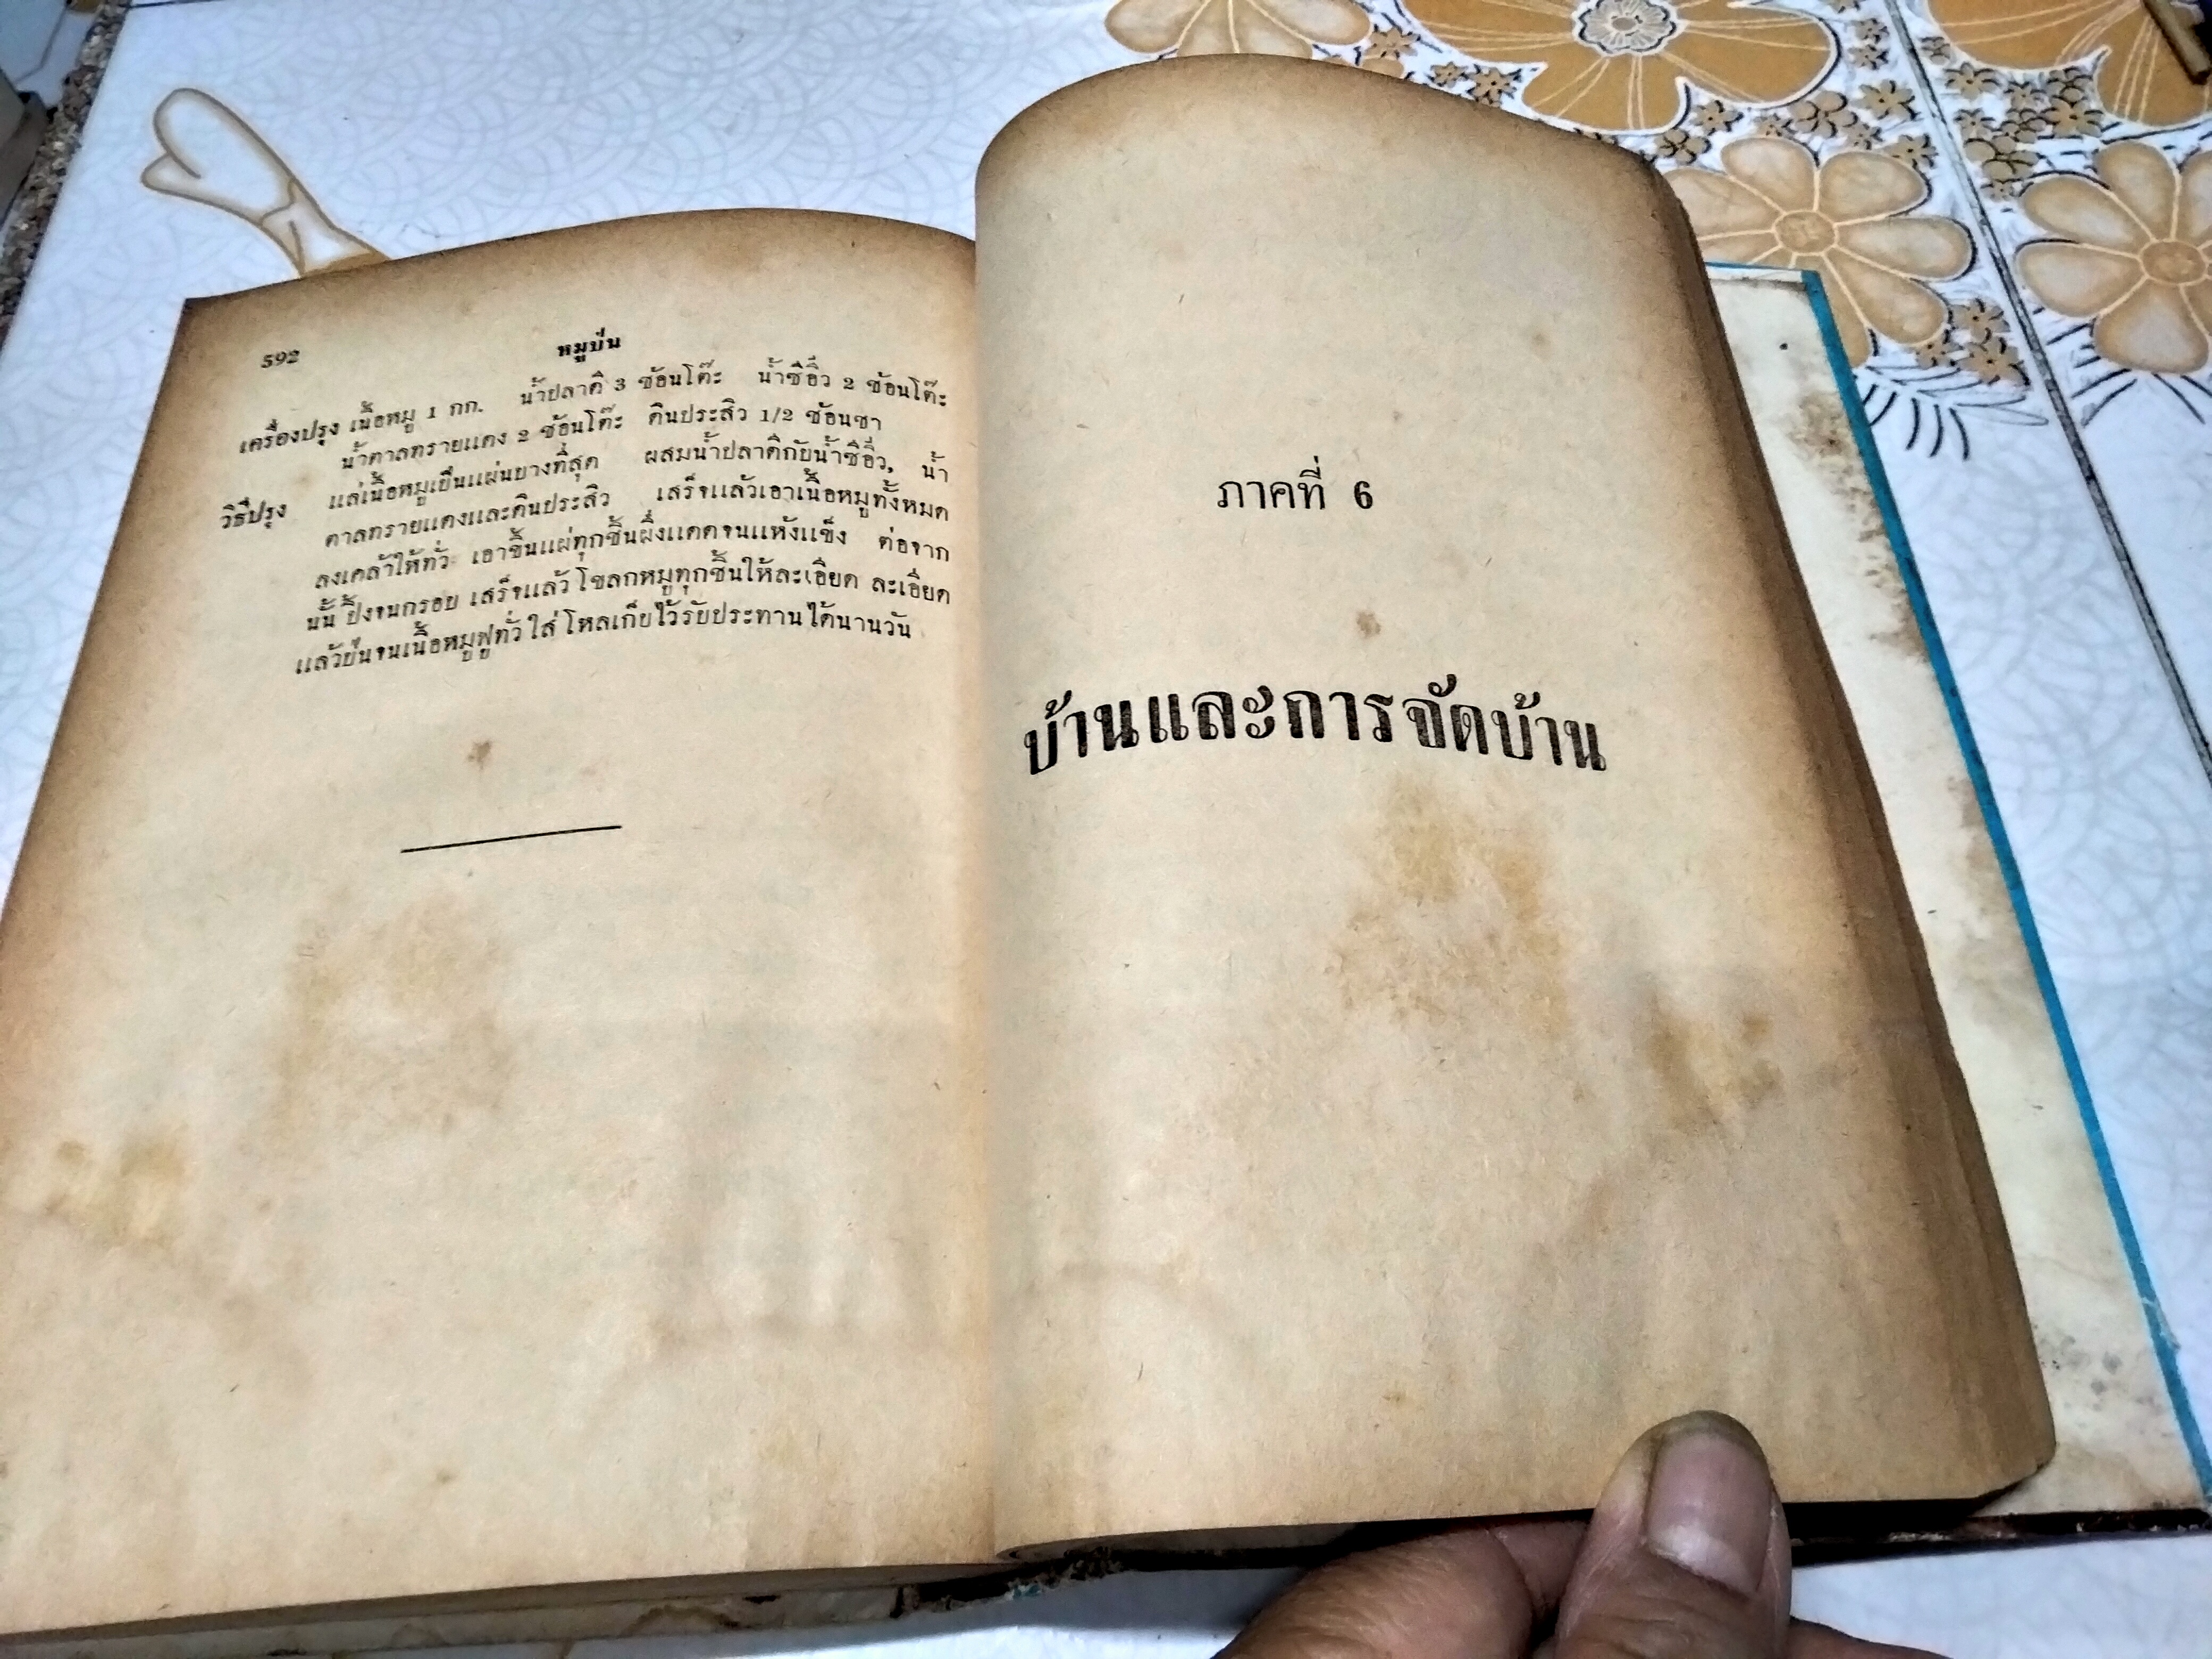 592
หมูป่น
เครื่องปรุง เนื้อหมู 1 กก. น้ำปลาดี 3 ช้อนโต๊ะ น้ำซีอิ๊ว 2 ช้อนโต๊ะ
น้ำตาลทรายแดง 2 ช้อนโต๊ะ ดินประสิว 1/2 ช้อนชา
วิธีปรุง แล่เนื้อหมูเป็นแผ่นบางที่สุด ผสมน้ำปลาดีกับน้ำซีอิ๊ว, น้ำ
ตาลทรายแดงและดินประสิว เสร็จแล้วเอาเนื้อหมูทั้งหมด
ลงเคล้าให้ทั่ว เอาขึ้นแผ่ทุกชิ้นผึ่งแดดจนแห้งแข็ง ต่อจาก
นั้น ปิ้งจนกรอบ เสร็จแล้วโขลกหมูทุกชิ้นให้ละเอียด ละเอียด
แล้วป่นจนเนื้อหมูฟูทั่ว ใส่โหลเก็บไว้รับประทานได้นานวัน
ภาคที่ 6
บ้านและการจัดบ้าน